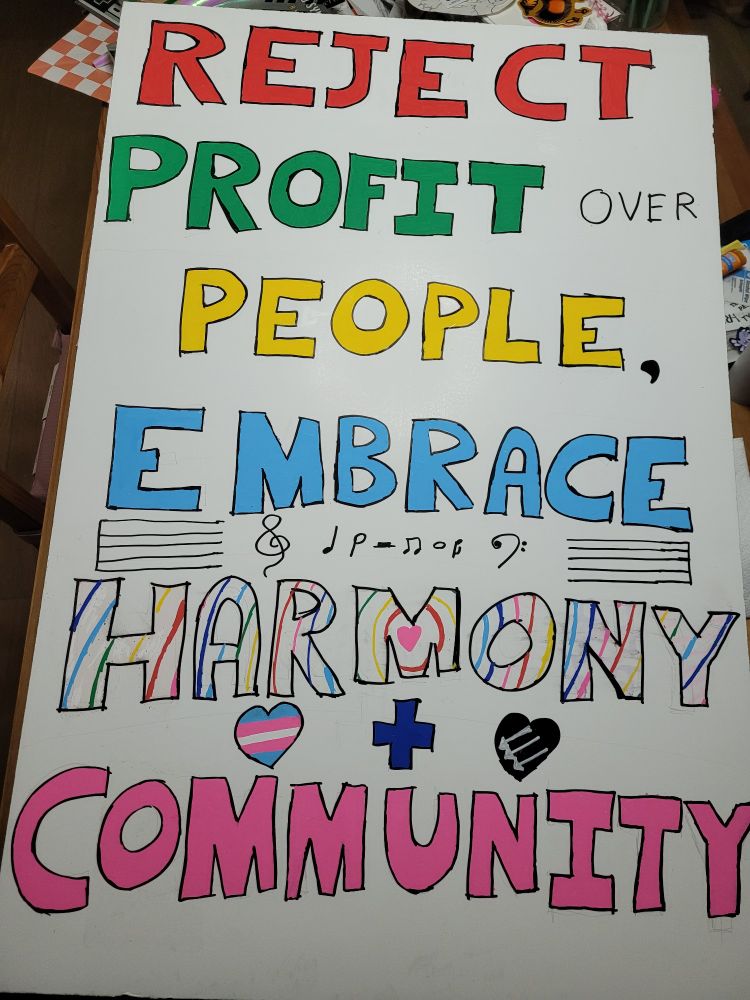 REJECT
PROFIT OVER
PEOPLE,
EMBRACE
HARMONY
+
COMMUNITY